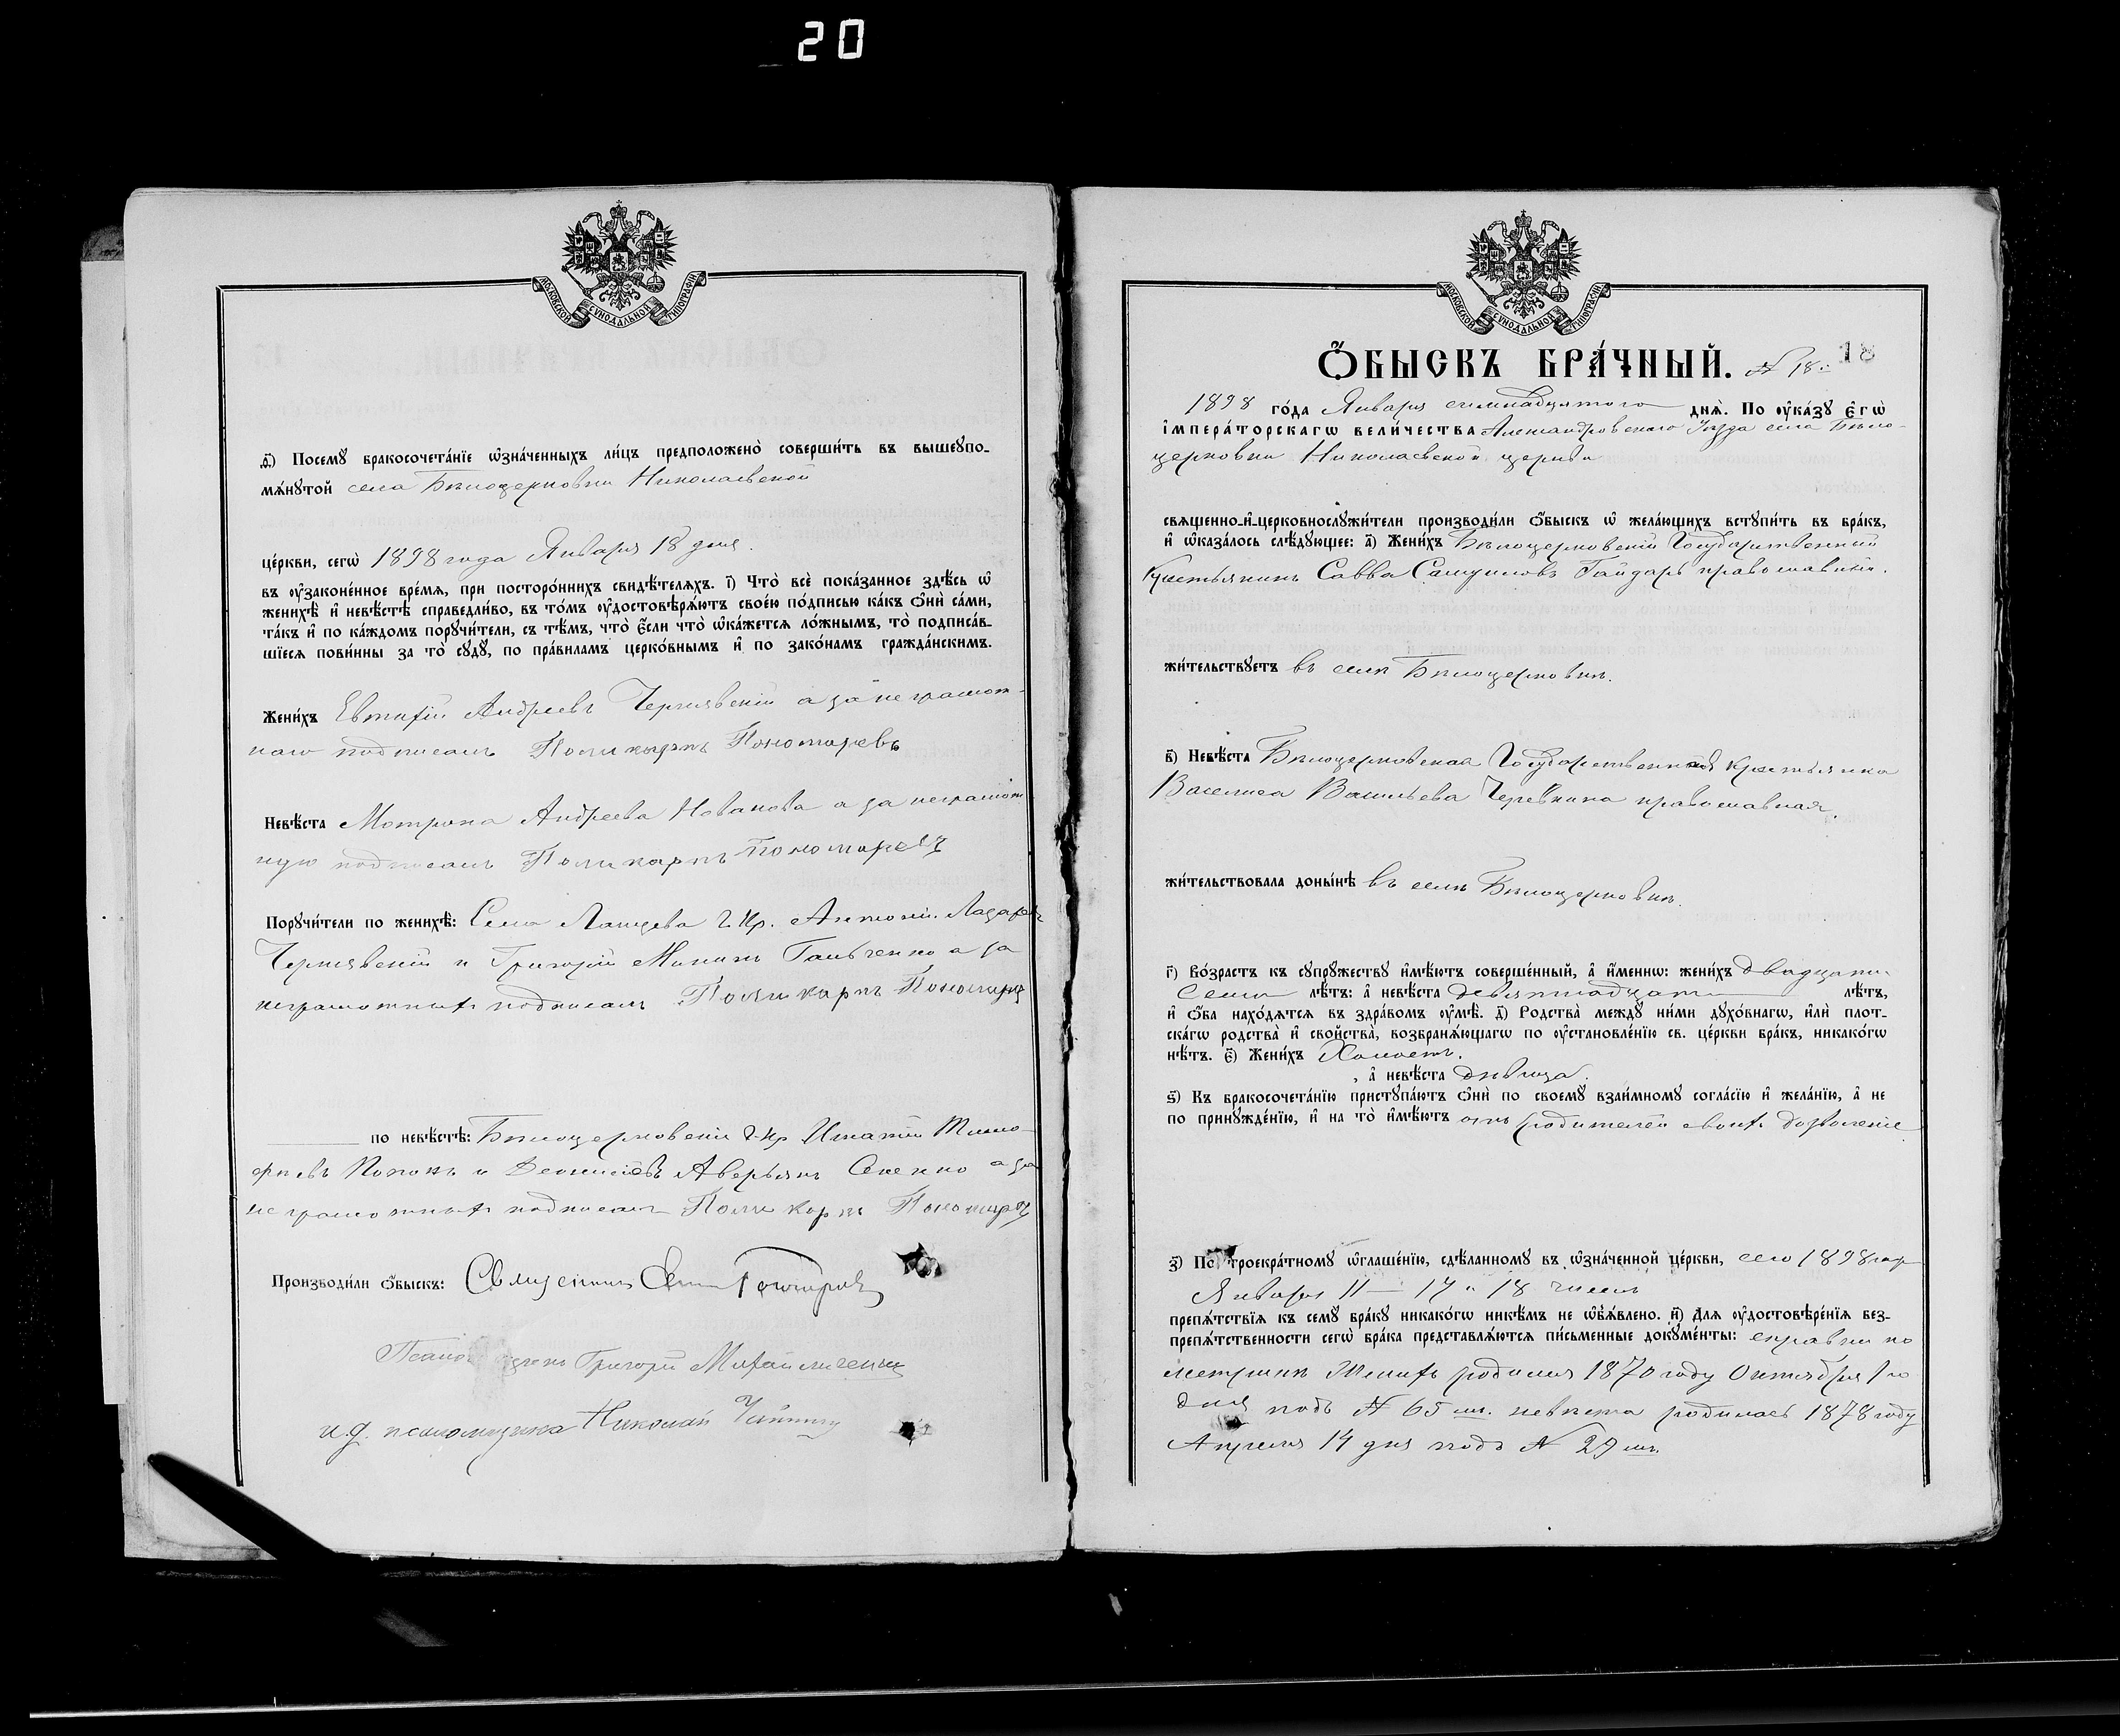 20
МОСКОВСКОЙ СѴНОДАЛЬНОЙ ТИПОГРАФІИ
ѳ҃) Посемꙋ бракосочета́нїе ѡ҆зна́ченныхъ ли́цъ предположено̀ соверши́ть въ вышеꙋпо-
мѧ́нꙋтой села Бѣлоцерковки Николаевской
це́ркви, сегѡ̀ 1898 года Января 18 дня.
въ ᲂу҆зако́ненное вре́мѧ, при посторо́ннихъ свидѣ́телѧхъ. і҃) Что̀ всѐ пока́занное здѣ́сь ѡ҆
женихѣ̀ и҆ невѣ́стѣ справедли́во, въ то́мъ ᲂу҆достовѣрѧ́ютъ свое́ю по́дписью ка́къ ѻ҆нѝ са́ми,
та́къ и҆ по ка́ждомъ порꙋчи́тели, съ тѣ́мъ, что̀ є҆́сли что̀ ѡ҆ка́жетсѧ ло́жнымъ, то̀ подписа́в-
шїесѧ пови́нны за то̀ сꙋдꙋ̀, по пра́виламъ церко́внымъ и҆ по зако́намъ гражда́нскимъ.
Жени́хъ Евтихій Андреевъ Чернявскій а за неграмот-
наго подписалъ Поликарпъ Пономаревъ
Невѣ́ста Мотрона Андреева а за неграмот
ную подписалъ Поликарпъ Пономаревъ
Порꙋчи́тели по женихѣ̀: Села г. кр. Антоній Лазаревъ
Чернявскій и Григорій Мининъ Гальченко а за
неграмотныхъ подписалъ Поликарпъ Пономаревъ
по невѣ́стѣ: Бѣлоцерковскіи г. кр. Игнатій Тимо-
фѣевъ и Аверьянъ а за
неграмотныхъ подписалъ Поликарпъ Пономаревъ
Производи́ли ѻ҆́быскъ: Священникъ
Григорій Михайличенко
и. д. псаломщика Николай
МОСКОВСКОЙ СѴНОДАЛЬНОЙ ТИПОГРАФІИ
Ѻ҆́БЫСКЪ БРА́ЧНЫЙ. № 18. 18
1898 го́да Января семнадцятого днѧ̀. По ᲂу҆ка́зꙋ є҆гѡ̀
і҆мпера́торскагѡ вели́чества Александровскаго Уѣзда села Бѣло-
церковки Николаевской церкви
свѧще́нно-и҆-церковнослꙋжи́тели производи́ли ѻ҆́быскъ ѡ҆ жела́ющихъ встꙋпи́ть въ бра́къ,
и҆ ѡ҆каза́лось слѣ́дꙋющее: а҃) Жени́хъ Бѣлоцерковскій Государственный
Крестьянинъ Савва Самуиловъ Гайдарь православный.
жи́тельствꙋетъ въ селѣ Бѣлоцерковкѣ.
в҃) Невѣ́ста Бѣлоцерковская Государственная крестьянка
Василиса Васильева Черевкина православная.
жи́тельствовала доны́нѣ въ селѣ Бѣлоцерковкѣ.
г҃) Во́зрастъ къ сꙋпрꙋ́жествꙋ и҆мѣ́ютъ соверше́нный, а҆ и҆́меннѡ: жени́хъ двадцати
семи лѣ́тъ: а҆ невѣ́ста девятнадцати лѣ́тъ,
и҆ ѻ҆́ба нахо́дѧтсѧ въ здра́вомъ ᲂу҆мѣ̀. д҃) Родства̀ междꙋ̀ ни́ми дꙋхо́внагѡ, и҆лѝ плот-
ска́гѡ родства̀ и҆ сво́йства̀, возбранѧ́ющагѡ по ᲂу҆становле́нїю св. це́ркви бра́къ, никако́гѡ
нѣ́тъ. є҃) Жени́хъ Холостъ.
, а҆ невѣ́ста дѣвица.
ѕ҃) Къ бракосочета́нїю пристꙋпа́ютъ ѻ҆нѝ по своемꙋ̀ взаи́мномꙋ согла́сїю и҆ жела́нїю, а҆ не
по принꙋжде́нїю, и҆ на то̀ и҆мѣ́ютъ отъ родителей своихъ дозволеніе
з҃) По троекра́тномꙋ ѡ҆глаше́нїю, сдѣ́ланномꙋ въ ѡ҆зна́ченной це́ркви, сего 1898 года
Января 11 – 17 и 18 числъ
препѧ́тствїѧ къ семꙋ̀ бра́кꙋ никако́гѡ никѣ́мъ не ѡ҆б̾ѧ́влено. и҃) Длѧ ᲂу҆достовѣре́нїѧ без-
препѧ́тственности сегѡ̀ бра́ка представлѧ́ютсѧ пи́сьменные докꙋме́нты: справки по
метрикѣ Женихъ родился 1870 году Октября 1го
дня подъ № 65 мъ. невѣста родилась 1878 году
Апреля 14 дня подъ № 29 мъ.